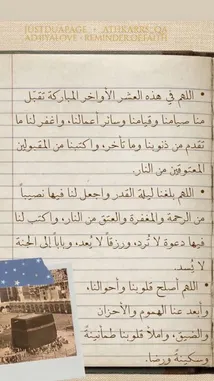 JUSTDUAPAGE + ATHKARR1_QA
AD3IYALOVE - REMINDER.OF.FAITH
• اللهم في هذه العشر الأواخر المباركة تقبّل
منا صيامنا وقيامنا وسائر أعمالنا، واغفر لنا ما
تقدم من ذنوبنا وما تأخر، واكتبنا من المقبولين
المعتوقين من النار.
• اللهم بلغنا ليلة القدر واجعل لنا فيها نصيباً
من الرحمة والمغفرة والعتق من النار، واكتب لنا
فيها دعوة لا تُرد، ورزقاً لا يُعد، وباباً إلى الجنة
لا يُسد.
• اللهم أصلح قلوبنا وأحوالنا،
وأبعد عنا الهموم والأحزان
والضيق، واملأ قلوبنا طمأنينةً
وسكينةً ورضا.